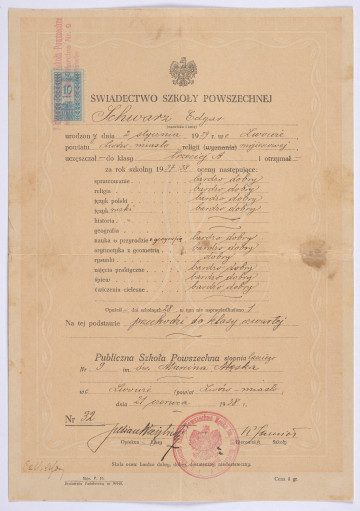 ŚWIADECTWO SZKOŁY POWSZECHNEJ
Schwarz Edgar
urodzony dnia 2 stycznia 1929 r. we Lwowie
powiatu Lwów-miasto religii (wyznania) mojżeszowej
uczęszczał do klasy trzeciej A i otrzymał
za rok szkolny 1937/38 oceny następujące:
sprawowanie bardzo dobry
religia bardzo dobry
język polski bardzo dobry
język bardzo dobry
historia
geografia
nauka o przyrodzie z geografią bardzo dobry
arytmetyka z geometrią bardzo dobry
rysunki dobry
zajęcia praktyczne bardzo dobry
śpiew bardzo dobry
ćwiczenia cielesne bardzo dobry
Opuścił dni szkolnych 28, w tym nie usprawiedliwiono 1
Na tej podstawie przechodzi do klasy czwartej
Publiczna Szkoła Powszechna stopnia trzeciego
Nr 9 im. św. Marcina Męska
we Lwowie powiat Lwów-miasto
dnia 21 czerwca 1938.
Nr 32
Opiekun klasy
Kierownik Szkoły
Skala ocen: bardzo dobry, dobry, dostateczny, niedostateczny.
Cena 5 gr.